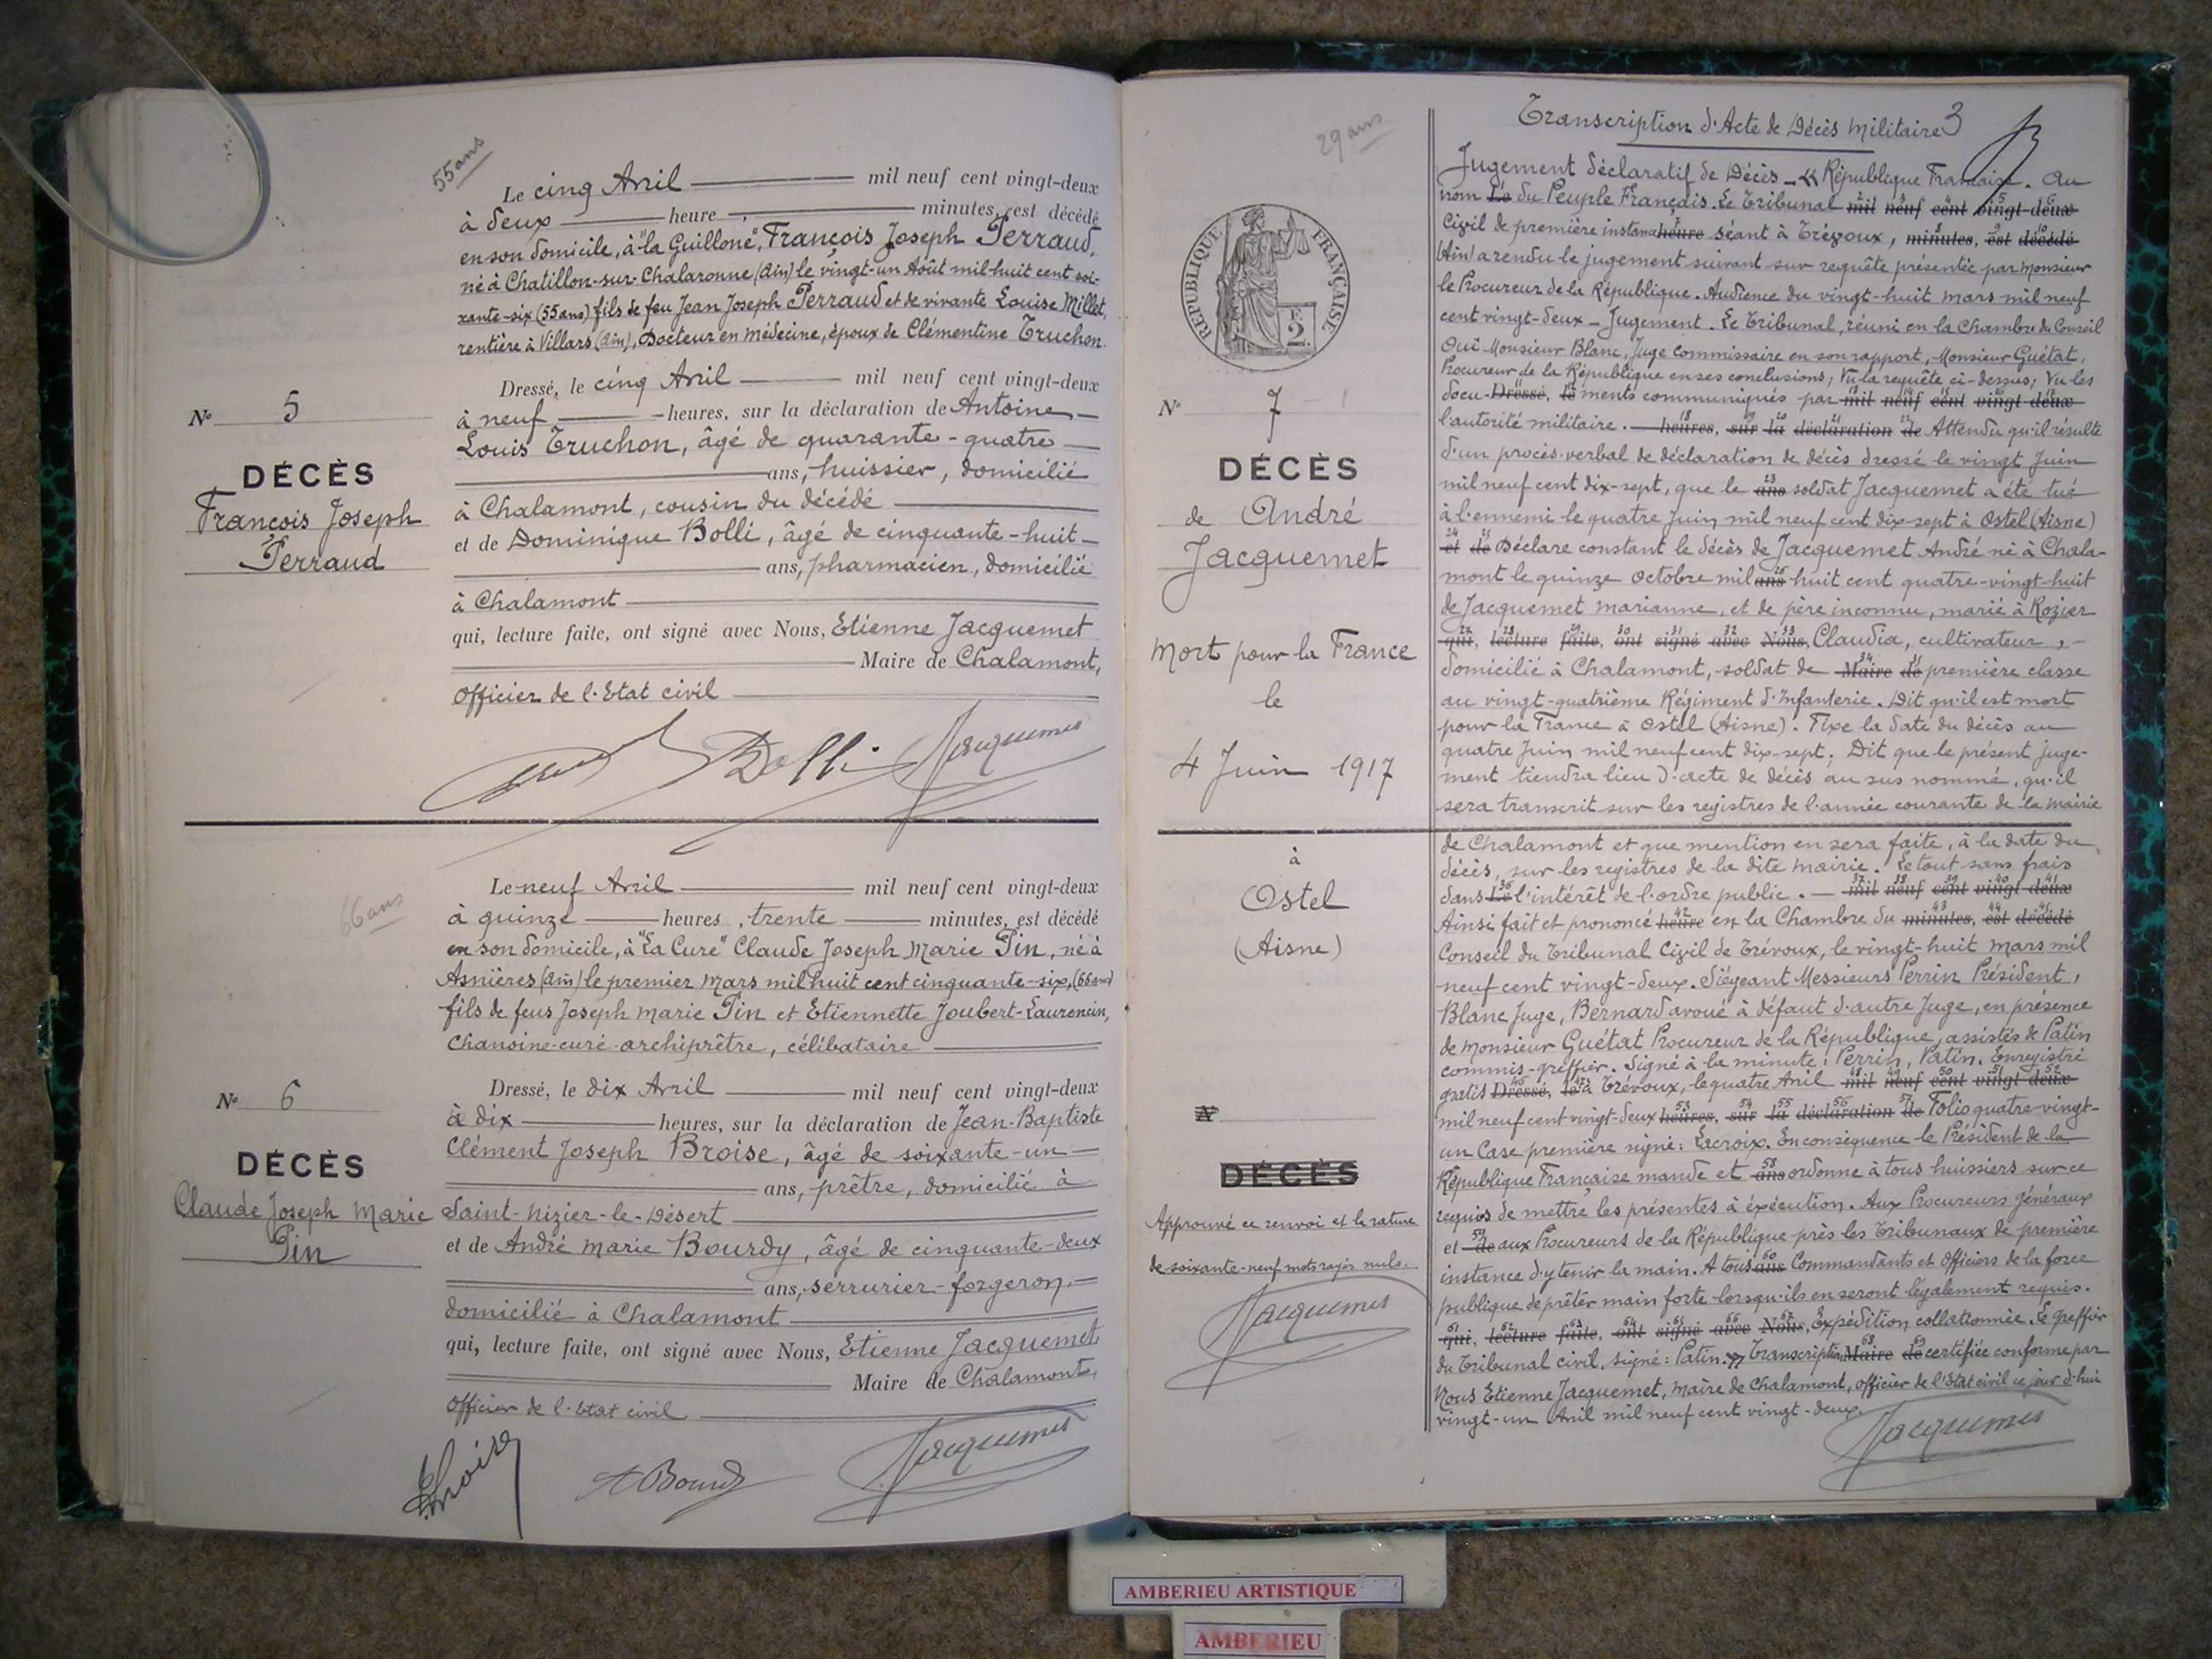 55 ans
Le cinq Avril mil neuf cent vingt-deux
à deux heure minutes, est décédé
en son domicile, à "la Guillone", François Joseph Perraud,
né à Chatillon-sur-Chalaronne (Ain) le vingt-un Août mil huit cent soi-
xante-six (55 ans) fils de feu Jean Joseph Perraud et de vivante Louise Millet,
rentière à Villars (Ain), Docteur en Médecine, époux de Clémentine Truchon.
Dressé, le cinq Avril mil neuf cent vingt-deux
à neuf heures, sur la déclaration de Antoine
Louis Truchon, âgé de quarante-quatre
ans, huissier, domicilié
à Chalamont, cousin du décédé
et de Dominique Bolli, âgé de cinquante-huit
ans, pharmacien, domicilié
à Chalamont
qui, lecture faite, ont signé avec Nous, Etienne Jacquemet
Maire de Chalamont,
Officier de l'Etat civil
Bolli Jacquemet
No 5
DÉCÈS
François Joseph
Perraud
66 ans
Le neuf Avril mil neuf cent vingt-deux
à quinze heures, trente minutes, est décédé
en son domicile, à "La Cure" Claude Joseph Marie Pin, né à
Asnières (Ain) le premier Mars mil huit cent cinquante-six, (66 ans)
fils de feus Joseph Marie Pin et Etiennette Joubert-Laurencin,
Chanoine-curé-archiprêtre, célibataire
Dressé, le dix Avril mil neuf cent vingt-deux
à dix heures, sur la déclaration de Jean-Baptiste
Clément Joseph Broise, âgé de soixante-un
ans, prêtre, domicilié à
Saint-Nizier-le-Désert
et de André Marie Bourdy, âgé de cinquante-deux
ans, serrurier-forgeron
domicilié à Chalamont
qui, lecture faite, ont signé avec Nous, Etienne Jacquemet
Maire de Chalamont,
Officier de l'Etat civil
Broise A Bourdy Jacquemet
No 6
DÉCÈS
Claude Joseph Marie
Pin
29 ans
RÉPUBLIQUE FRANÇAISE
2
No 7
DÉCÈS
de André
Jacquemet
Mort pour la France
le
4 Juin 1917
à
Ostel
(Aisne)
No
DÉCÈS
Approuvé ce renvoi et la rature
de soixante-neuf mots rayés nuls.
Jacquemet
Transcription d'Acte de Décès Militaire 3
Jugement déclaratif de Décès - "République Française. Au
nom Le du Peuple Français. Le Tribunal mil neuf cent vingt-deux
Civil de première instance heure séant à Trévoux, minutes, est décédé
(Ain) a rendu le jugement suivant sur requête présentée par Monsieur
le Procureur de la République. Audience du vingt-huit Mars mil neuf
cent vingt-deux - Jugement. Le Tribunal, réuni en la Chambre du Conseil
Ouï Monsieur Blanc, Juge Commissaire en son rapport, Monsieur Guétat,
Procureur de la République en ses conclusions; Vu la requête ci-dessus; Vu les
docu- Dressé, le ments communiqués par mil neuf cent vingt-deux
l'autorité militaire. - heures, sur la déclaration de Attendu qu'il résulte
d'un procès-verbal de déclaration de décès dressé le vingt Juin
mil neuf cent dix-sept, que le ans soldat Jacquemet a été tué
à l'ennemi le quatre Juin mil neuf cent dix-sept à Ostel (Aisne)
et de Déclare constant le décès de Jacquemet André né à Chala-
mont le quinze Octobre mil ans huit cent quatre-vingt-huit
de Jacquemet Marianne, et de père inconnu, marié à Rozier
qui, lecture faite, ont signé avec Nous, Claudia, cultivateur,
domicilié à Chalamont, soldat de Maire de première classe
au vingt-quatrième Régiment d'Infanterie. Dit qu'il est mort
pour la France à Ostel (Aisne). Fixe la date du décès au
quatre Juin mil neuf cent dix-sept. Dit que le présent juge-
ment tiendra lieu d'acte de décès au sus nommé, qu'il
sera transcrit sur les registres de l'année courante de la Mairie
de Chalamont et que mention en sera faite, à la date du
décès, sur les registres de la dite Mairie. Le tout sans frais
dans Le l'intérêt de l'ordre public. - mil neuf cent vingt deux
Ainsi fait et prononcé heure en la Chambre du minutes, est décédé
Conseil du Tribunal Civil de Trévoux, le vingt-huit Mars mil
neuf cent vingt-deux. Siégeant Messieurs Perrin Président,
Blanc Juge, Bernard avoué à défaut d'autre Juge, en présence
de Monsieur Guétat Procureur de la République, assistés de Patin
commis-greffier. Signé à la minute: Perrin, Patin. Enregistré
gratis Dressé, le à Trévoux, le quatre Avril mil neuf cent vingt deux
mil neuf cent vingt-deux heures, sur la déclaration de Folio quatre-vingt-
un Case première signé: Lacroix. En conséquence le Président de la
République Française mande et ans ordonne à tous huissiers sur ce
requis de mettre les présentes à exécution. Aux Procureurs généraux
et de aux Procureurs de la République près les Tribunaux de première
instance d'y tenir la main. A tous ans Commandants et Officiers de la force
publique de prêter main forte lorsqu'ils en seront légalement requis.
qui, lecture faite, ont signé avec Nous, Expédition collationnée. Le greffier
du Tribunal civil, signé: Patin." Transcription Maire de certifiée conforme par
Nous Etienne Jacquemet, Maire de Chalamont, officier de l'Etat civil ce jour d'hui
vingt-un Avril mil neuf cent vingt-deux.
Jacquemet
AMBERIEU ARTISTIQUE
AMBERIEU